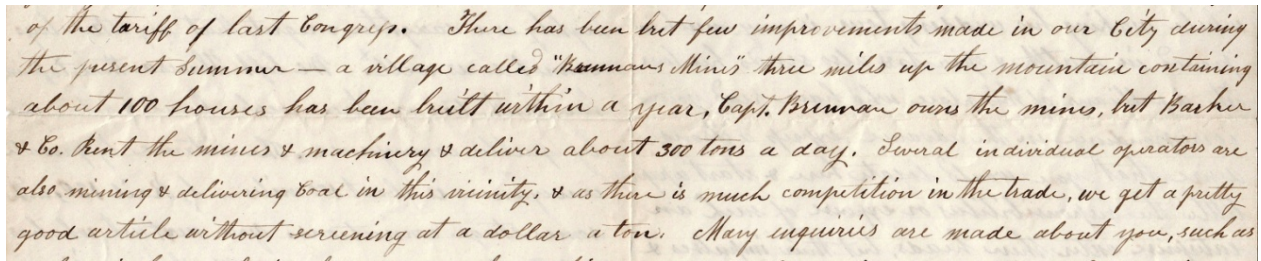 of the tariff of last Congress. There has been but few improvements made in our City during
the present Summer — a village called "Brennans Mines" three miles up the mountain containing
about 100 houses has been built within a year, Capt. Brennan owns the mines, but Barker
& Co. Rent the mines & machinery & deliver about 300 tons a day. Several individual operators are
also mining & delivering Coal in this vicinity. & as there is much competition in the trade, we get a pretty
good article without screening at a dollar a ton. Many enquiries are made about you, such as